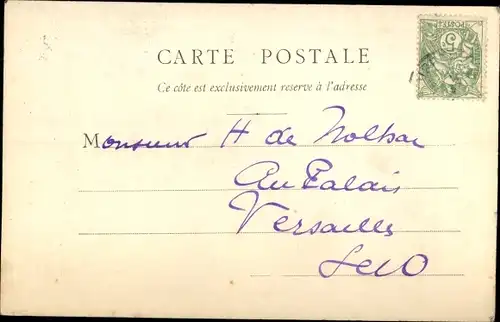 CARTE POSTALE
Ce côte est exclusivement reserve à l'adresse
Monsieur H de
Au Palais
Versailles
S et O
5